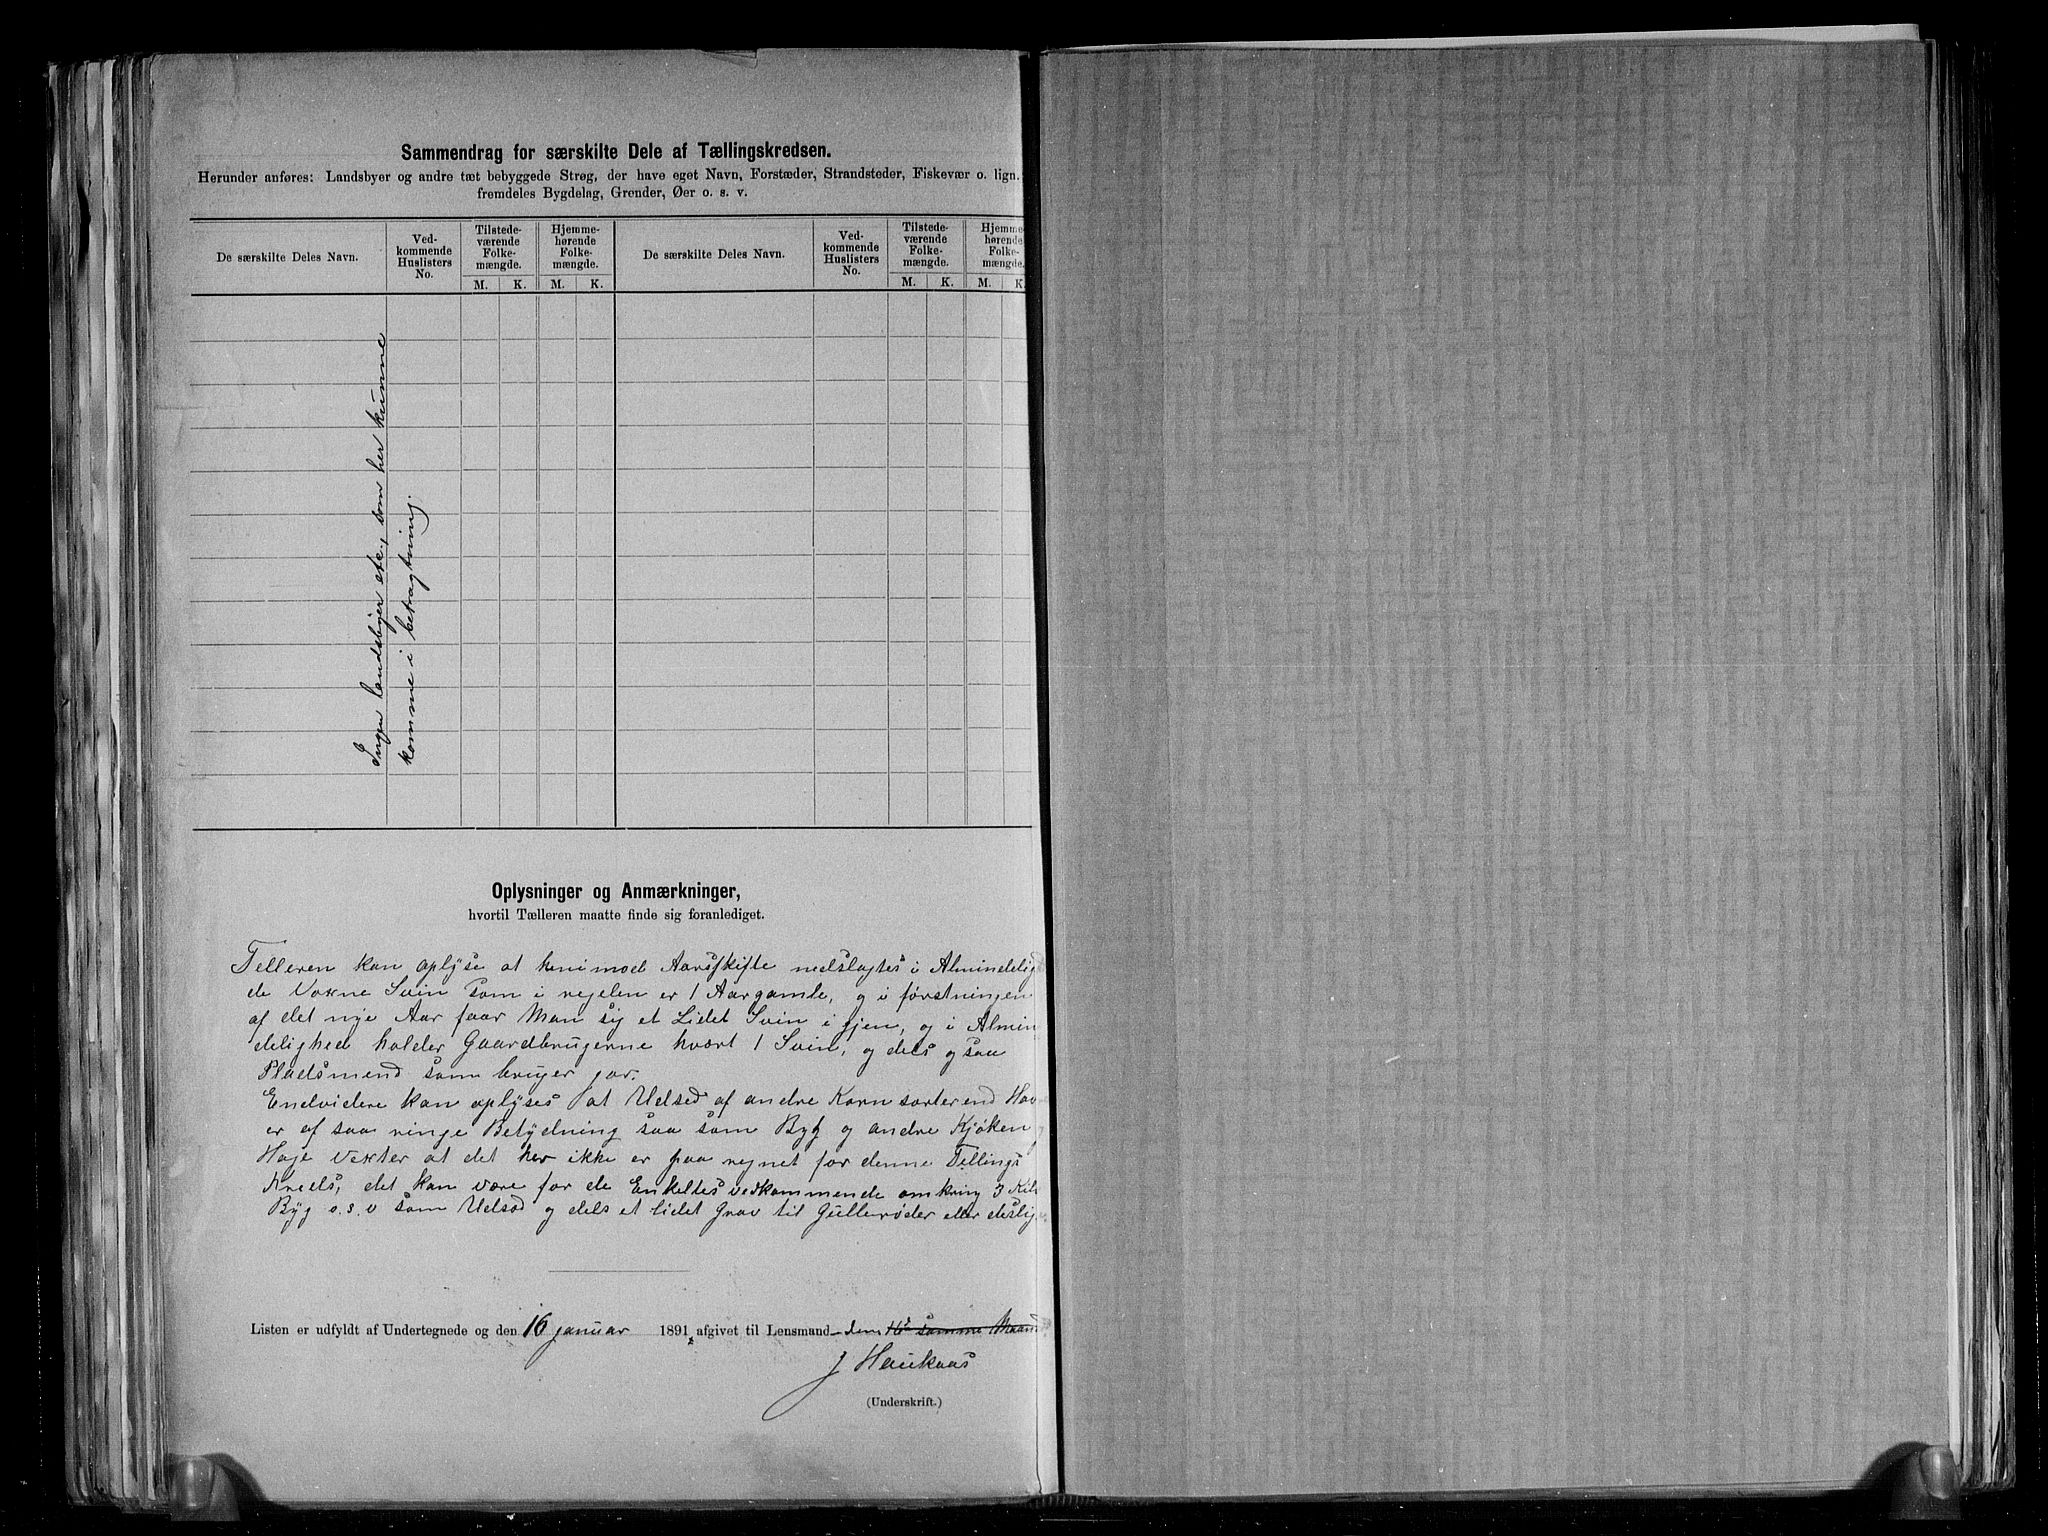 Sammendrag for særskilte Dele af Tællingskredsen.
Herunder anføres: Landsbyer og andre tæt bebyggede Strøg, der have eget Navn, Forstæder, Strandsteder, Fiskevær o. lign.
fremdeles Bygdelag, Grender, Øer o. s. v.
De særskilte Deles Navn.
Ved-
kommende
Huslisters
No.
Tilstede-
værende
Folke-
mængde.
M. K.
Hjemme-
hørende
Folke-
mængde.
M. K.
De særskilte Deles Navn.
Ved-
kommende
Huslisters
No.
Tilstede-
værende
Folke-
mængde.
M. K.
Hjemme-
hørende
Folke-
mængde.
M. K.
Ingen landsbyer etc., som her kunne
komme i betragtning.
Oplysninger og Anmærkninger,
hvortil Tælleren maatte finde sig foranlediget.
Telleren kan oplyse at henimod Aarsskifte nedslagtes i Almindelig
de Voxne Svin som i regelen er 1 Aargamle, og i førstningen
af det nye Aar faar Man sig et Lidet Svin igjen, og i Almin
delighed holder Gaardbrugerne hvært 1 Svin, og dels ogsaa
Pladsmend som bruger jor.
Endvidere kan oplyses at Udsed af andre Kornsorter end Hav
er af saa ringe Betydning saa som Byg og andre Kjøken
Hage vexter at det her ikke er paa regnet for denne Tellings
Kreds, det kan være for de Enkeltes vedkommende omkring 3 Kil
Byg o.s.v som Udsæd og dels et lidet Grav til Gullerøder eller deslig
Listen er udfyldt af Undertegnede og den 16 januar 1891, afgivet til Lensmand den 16d samme Maaned
J Haukaas
(Underskrift.)